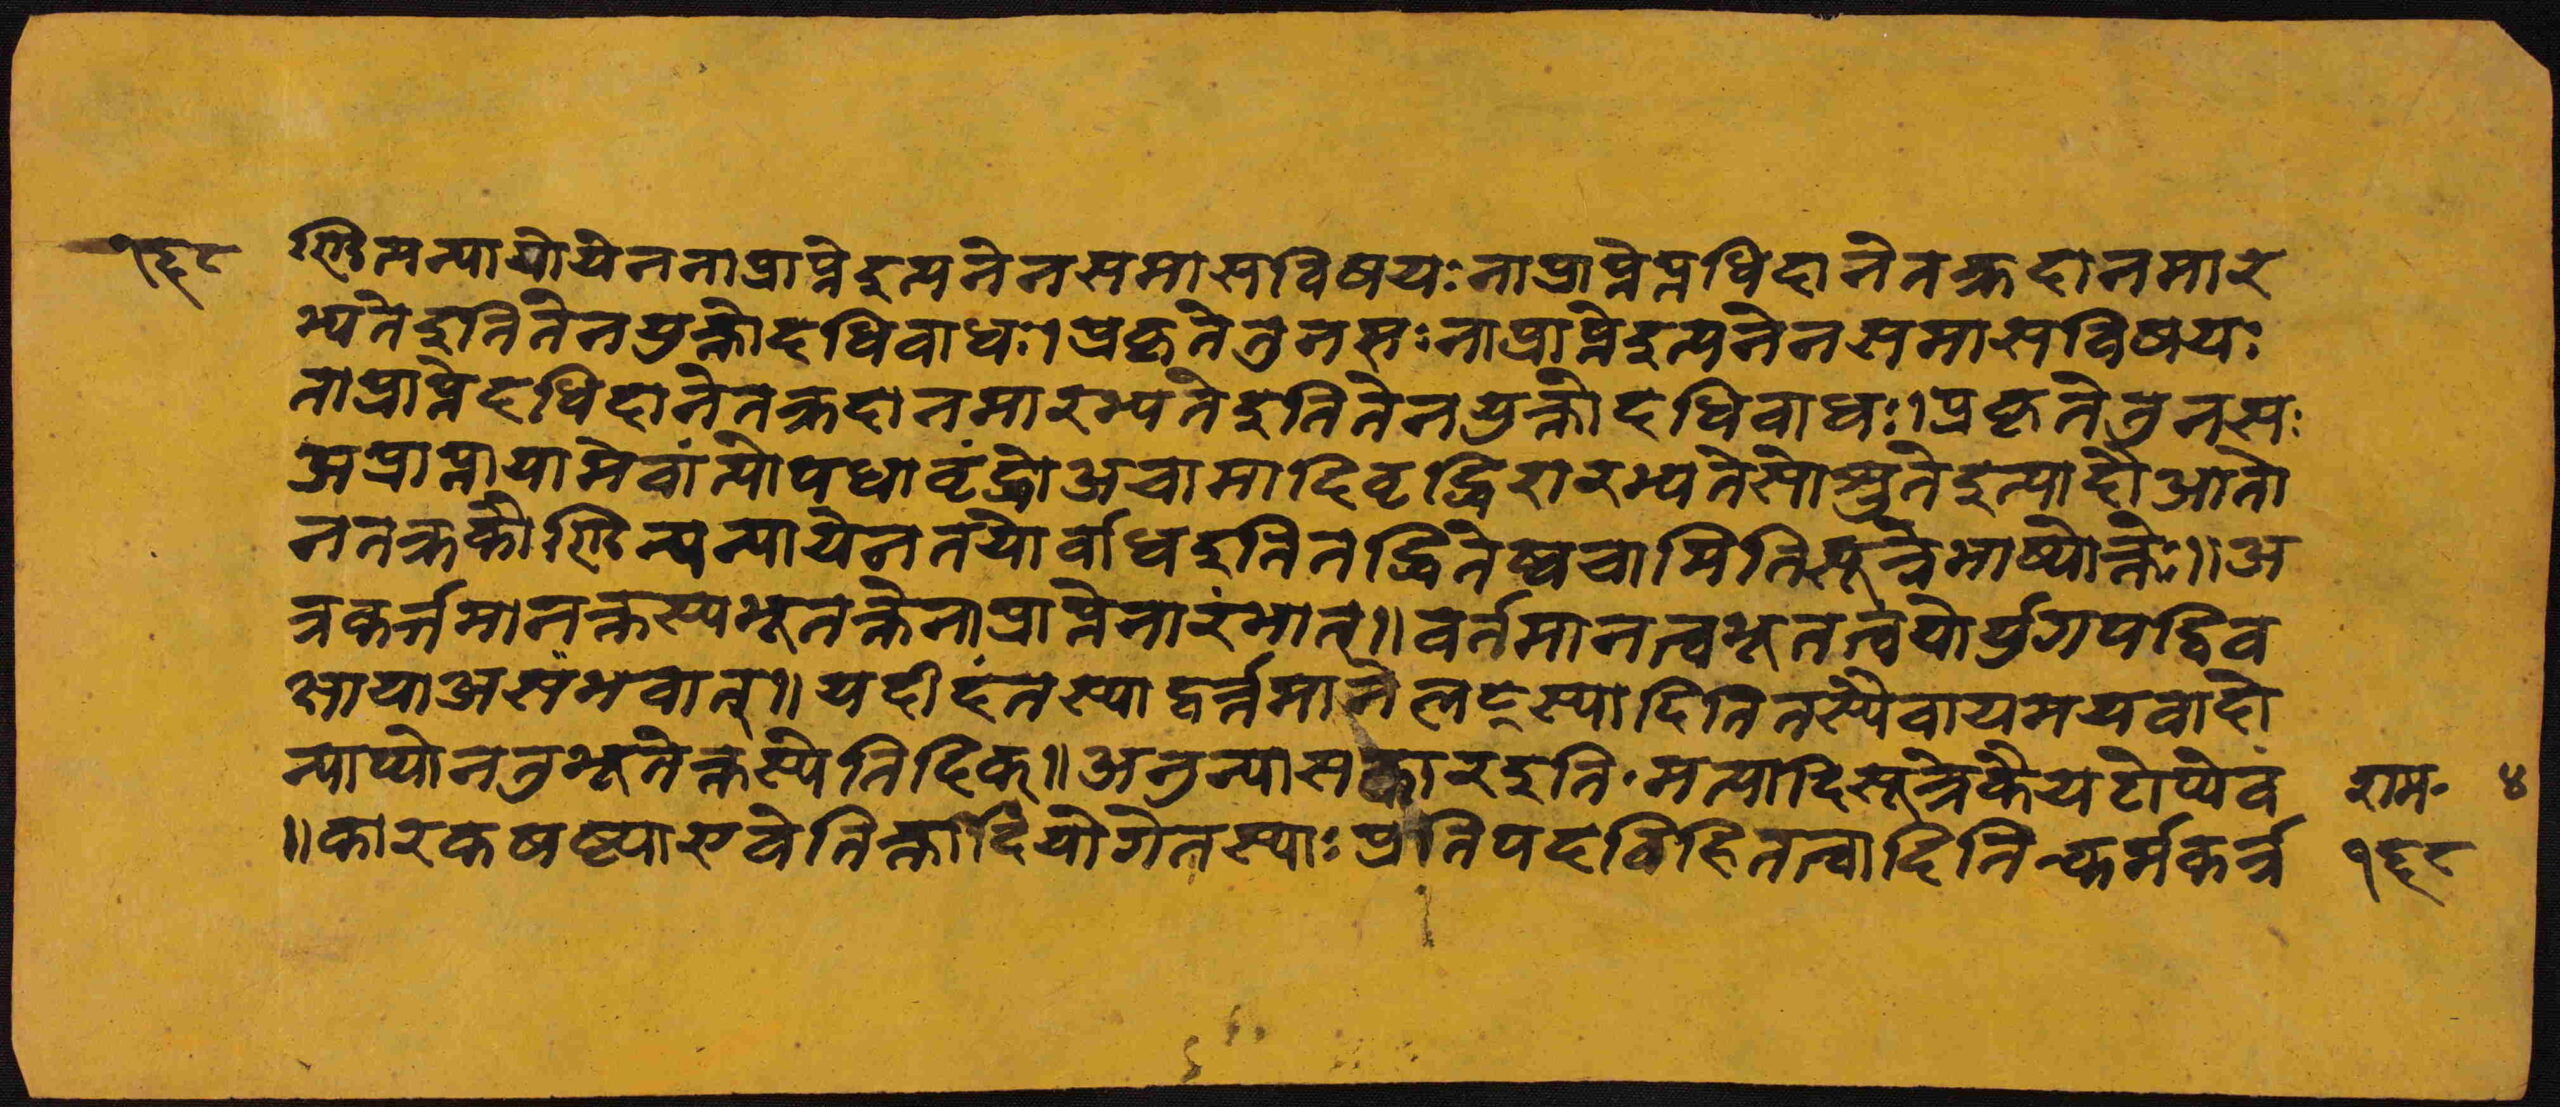 १६८
ण्डिन्यन्यायोयेननाप्राप्नेइत्यनेनसमासविषयःनाप्राप्तेप्नधिदानेतक्रदानमार
भ्यतेइतितेनयुक्तोदधिवाधः।प्रकृतेतुनसःनाप्राप्तेइत्यनेनसमासविषयः
नाप्राप्तेदधिदानेतक्रदानमारभ्यतेइतितेनयुक्तोदधिवाधः।प्रकृतेतुनसः
अप्राप्तायामेवांत्योपधावृंद्धोअचामादिवृद्धिरारभ्यतेसोश्रुतेइत्यादौआतो
नतक्रकौण्डिन्यन्यायेनतयोर्वाधइतितद्धितेष्वचामितिसूत्रेभाष्योक्तेः॥अ
त्रकर्त्तमानक्तस्यभूतक्तेनाप्राप्तेनारंभात्॥वर्तमानत्वभूतत्वयोर्युगपद्विव
क्षायाअसंभवात्॥यदीहंतस्याद्वर्त्तमानेलट्स्यादितितस्यैवायमयवादो
न्याय्योनतुभूतेक्तस्येतिदिक्॥अतुन्यासकारइति·मत्यादिसूत्रेकैयटोप्येवं
॥कारकषष्ट्याएवेतिक्तादियोगेतस्याःप्रतिपदविहितत्वादितिन्कर्मकर्त्र
राम॰ ४
१६८